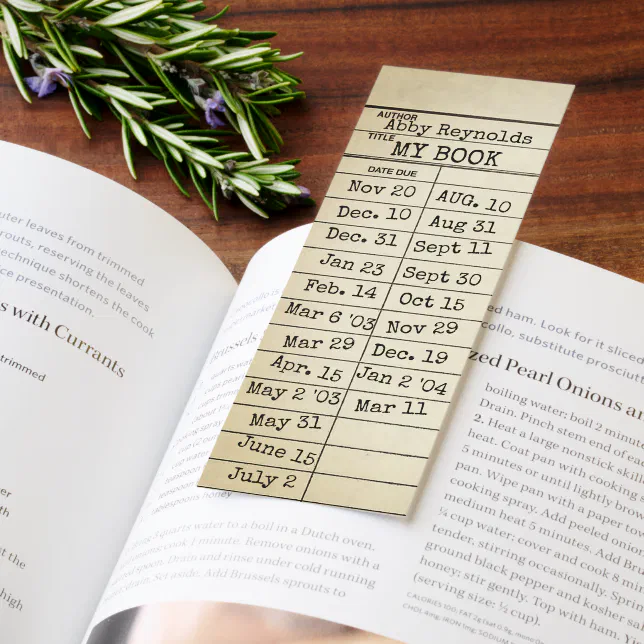 AUTHOR
Abby Reynolds
TITLE
MY BOOK
DATE DUE
Nov 20
Dec. 10
Dec. 31
Jan 23
Feb. 14
Mar 6 '03
Mar 29
Apr. 15
May 2 '03
May 31
June 15
July 2
AUG. 10
Aug 31
Sept 11
Sept 30
Oct 15
Nov 29
Dec. 19
Jan 2 '04
Mar 11
uter leaves from trimmed
routs, reserving the leaves
echnique shortens the cook
ce presentation.
s with Currants
trimmed
at the
high
quarts water to a boil in a Dutch oven.
cook 1 minute. Remove onions with a
spoon. Drain and rinse under cold running
drain. Set aside. Add Brussels sprouts to
ed ham. Look for it sliced
collo, substitute prosciutt
zed Pearl Onions an
boiling water; boil 2 minut
Drain. Pinch stem end of ea
2. Heat a large nonstick skill
heat. Coat pan with cooking
5 minutes or until lightly brow
pan. Wipe pan with a paper to
cooking spray. Add peeled onion
medium heat 5 minutes. Add Bru
¼ cup water; cover and cook 8 mi
tender, stirring occasionally. Sprin
ground black pepper and kosher sa
honey; stir gently. Top with ham.
(serving size: ½ cup).